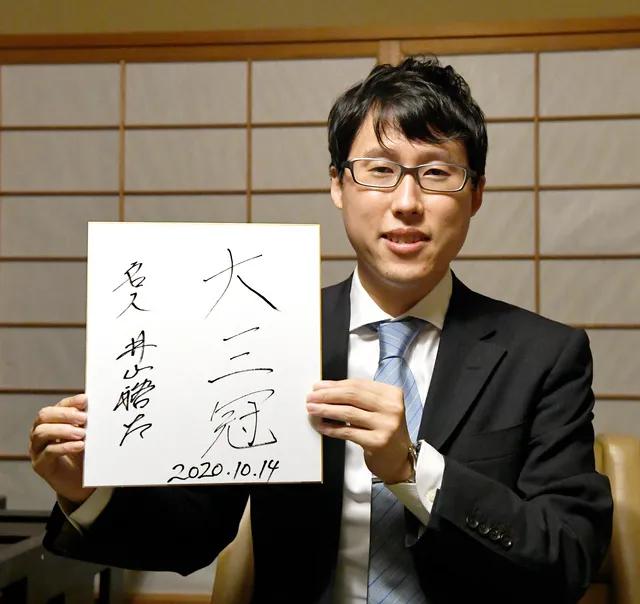 大三冠
名人 井山裕太
2020.10.14